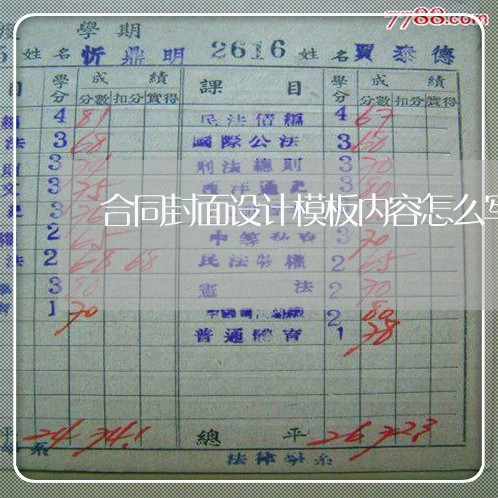 7788.com
學期
姓名 忻鼎明 2616 姓名 賈泰德
目 學分 成績 課目 學分 成績
分數 扣分 實得 分數 扣分 實得
4 81 民法債編 4 67
法 3 68 國際公法 3 60
3 刑法總則 3 70
文 3 75 西洋通史 3 80
合同封面设计模板内容怎么写
2 65 3 70
法 2 68 68 民法物權 2 65
3 80 憲法 2 70
1 70 2 80
普通體育 1 78
平 24 74.1 總平 26 72.3
系 法律學系